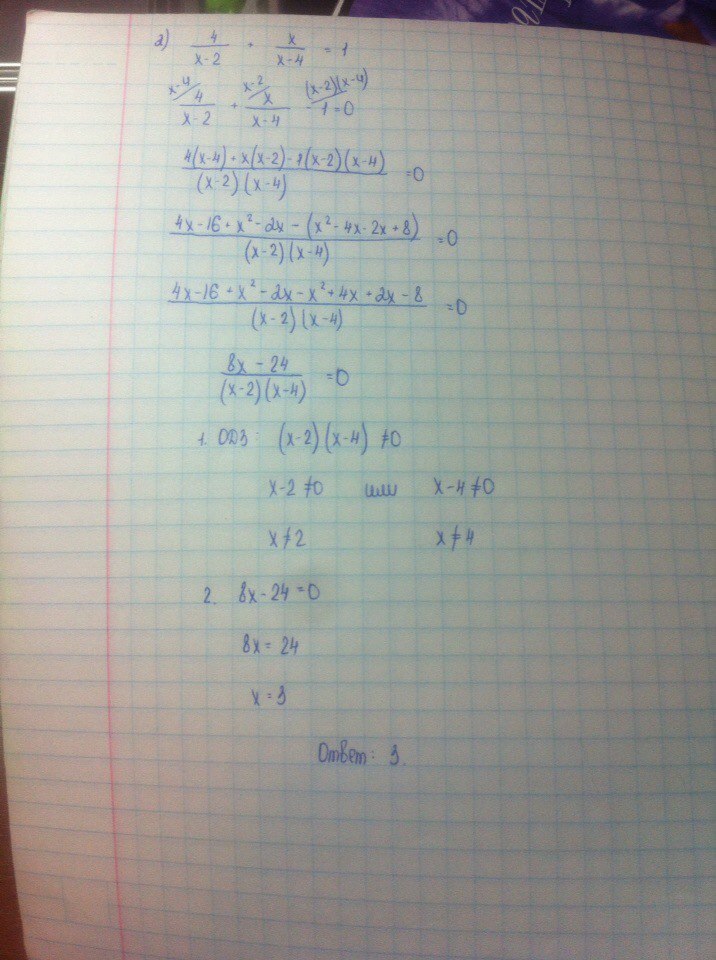 2) 4/(x-2) + x/(x-4) = 1
x-4/ 4/(x-2) + x-2/ x/(x-4) - (x-2)(x-4)/ 1 = 0
(4(x-4) + x(x-2) - 1(x-2)(x-4))/((x-2)(x-4)) = 0
(4x-16 + x² - 2x - (x² - 4x - 2x + 8))/((x-2)(x-4)) = 0
(4x-16 + x² - 2x - x² + 4x + 2x - 8)/((x-2)(x-4)) = 0
(8x - 24)/((x-2)(x-4)) = 0
1. ОДЗ: (x-2)(x-4) ≠ 0
x-2 ≠ 0 или x-4 ≠ 0
x ≠ 2 x ≠ 4
2. 8x-24 = 0
8x = 24
x = 3
Ответ: 3.